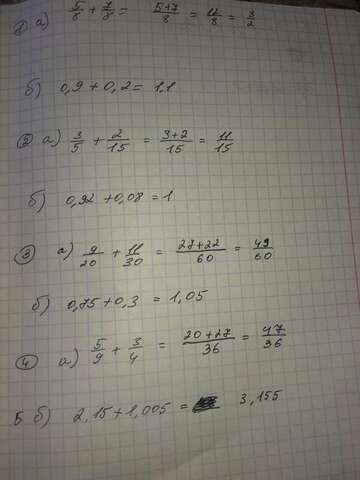 1 а) 5/8 + 7/8 = (5+7)/8 = 12/8 = 3/2
б) 0,9 + 0,2 = 1,1
2 а) 3/5 + 2/15 = (3+2)/15 = 11/15
б) 0,92 + 0,08 = 1
3 а) 9/20 + 11/30 = (27+22)/60 = 49/60
б) 0,75 + 0,3 = 1,05
4 а) 5/9 + 3/4 = (20+27)/36 = 47/36
5 б) 2,15 + 1,005 = 3,155